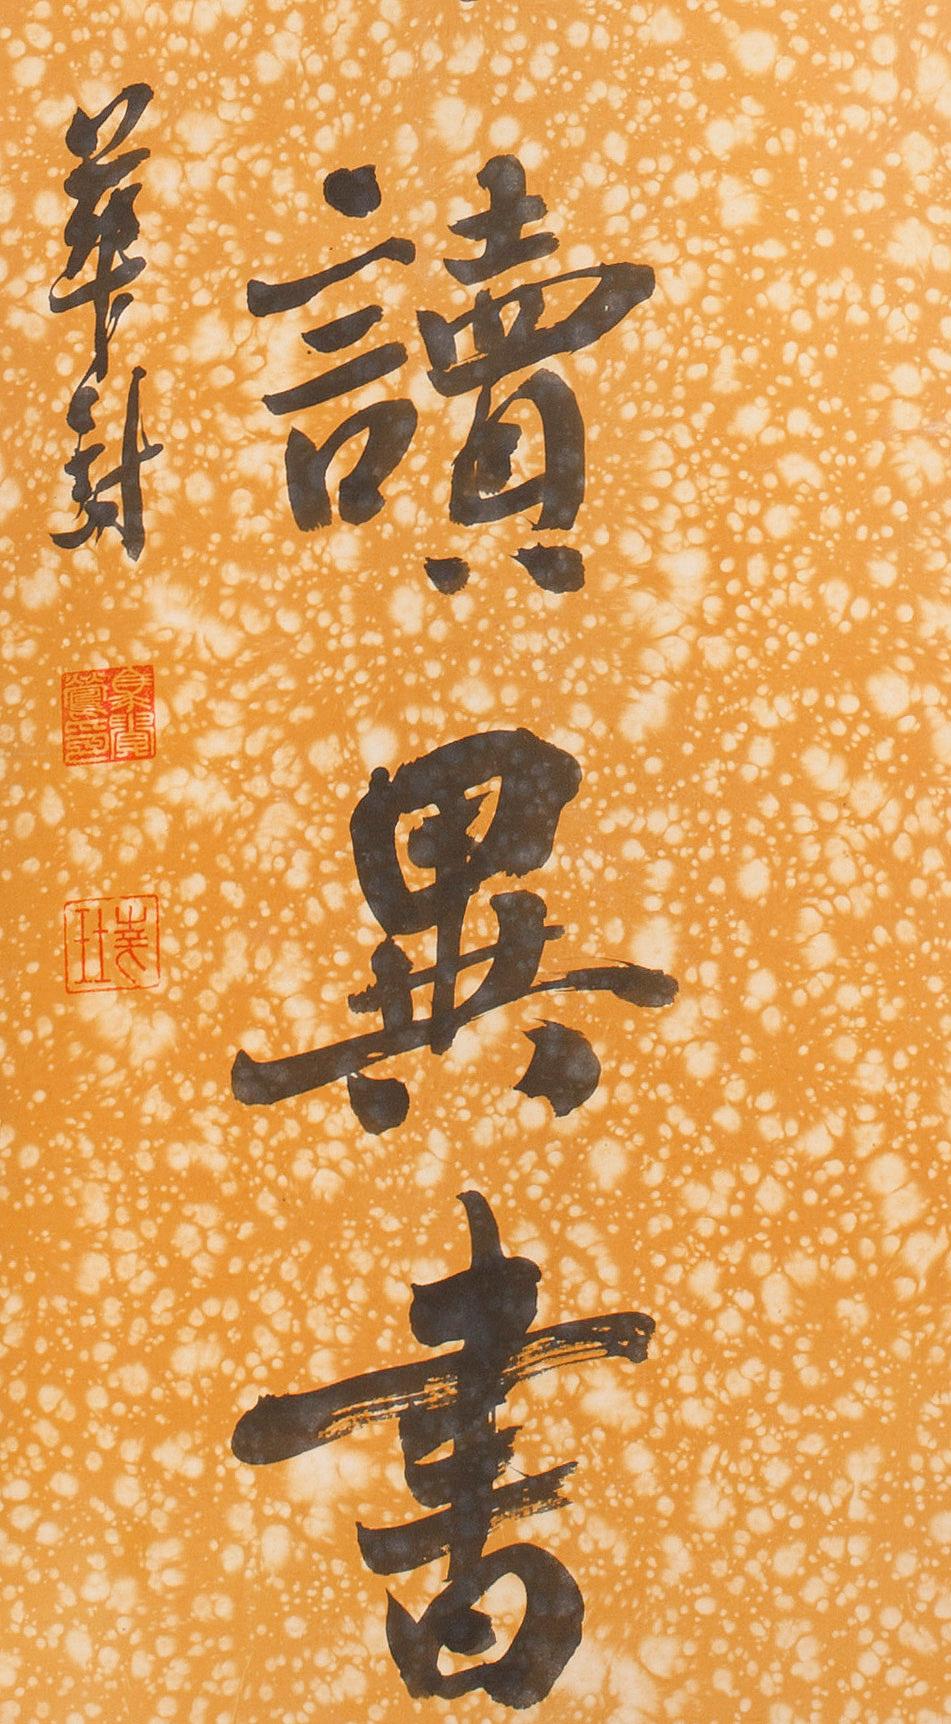 讀異書
華封